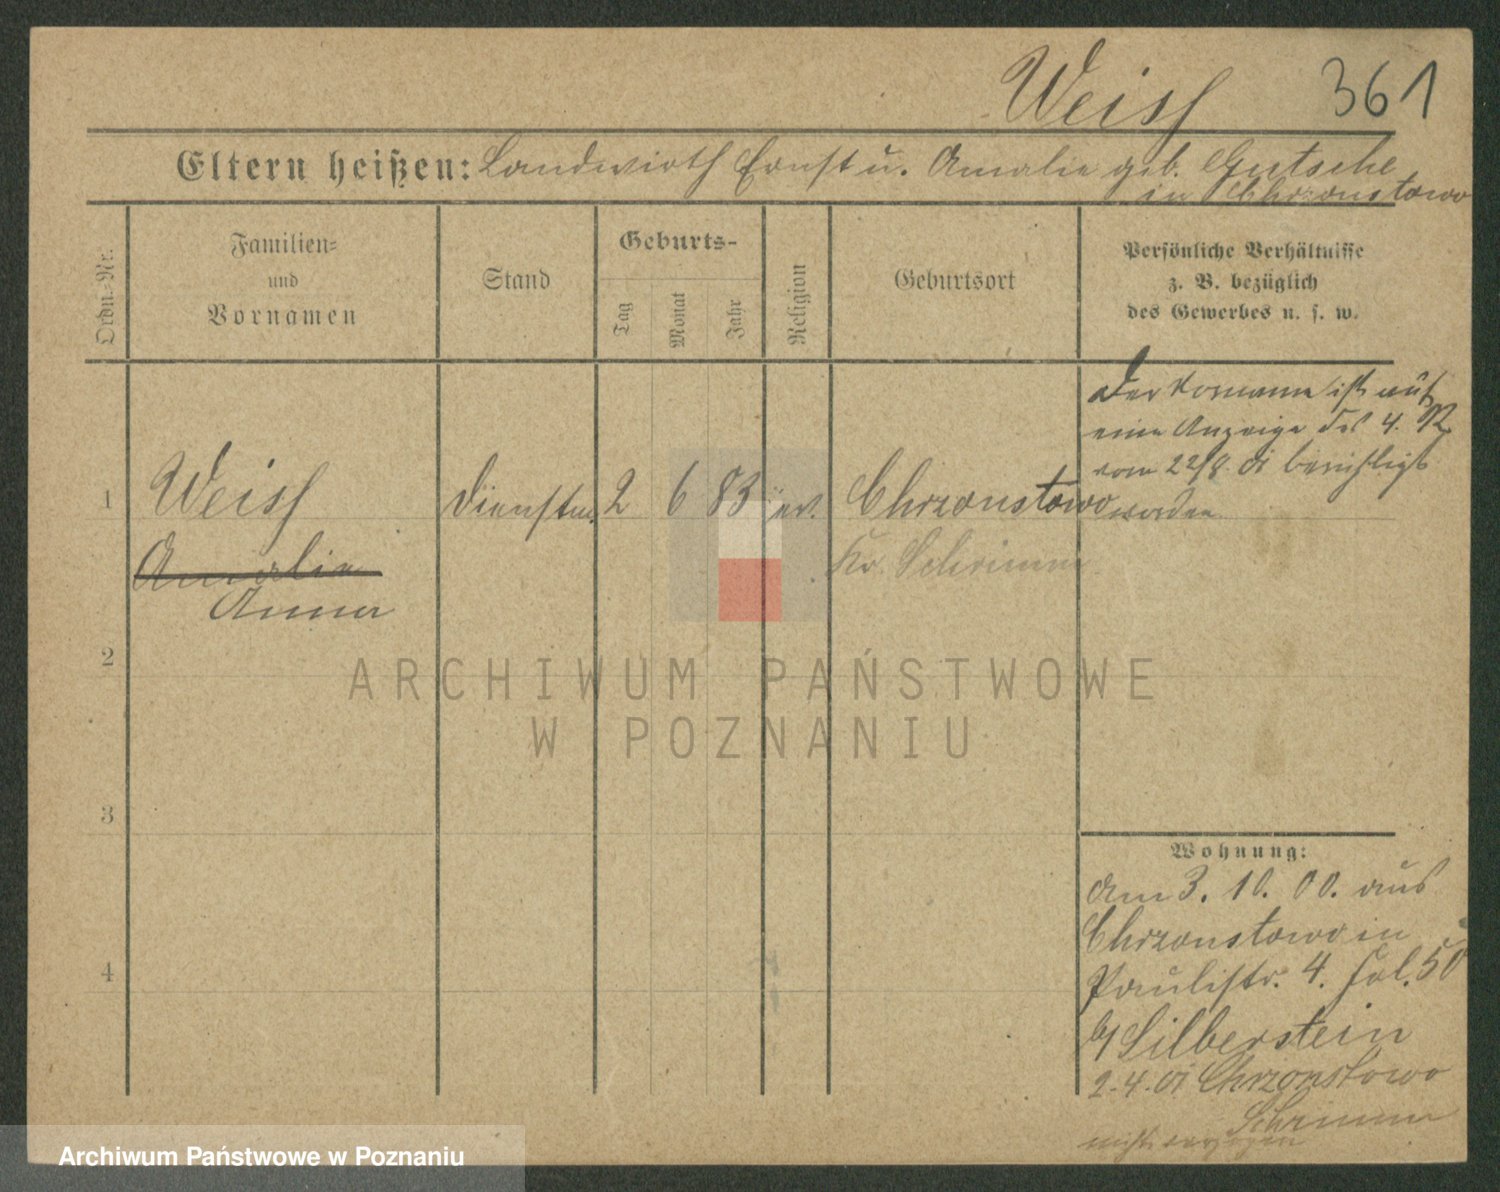 Weiss 361
Eltern heißen: Landwirth Ernst u. Amalie geb. Gutsche
in Chrzonstowo
Ordn.-Nr.
Familien-
und
Vornamen
Stand
Geburts-
Tag
Monat
Jahr
Religion
Geburtsort
Persönliche Verhältnisse
z. B. bezüglich
des Gewerbes u. s. w.
Der Vorname ist auf
eine Anzeige des 4. R.
vom 22/8. 01 berichtigt
worden
1 Weiss Dienstm. 2 6 83 ev. Chrzonstowo
Kr. Schrimm
Amalie
Anna
2
3
4
Wohnung:
Am 3. 10. 00. aus
Chrzonstowo in
Paulistr. 4. fol. 50
b/ Silberstein
2.4.01 Chrzonstowo
Schrimm
nicht verzogen
ARCHIWUM PAŃSTWOWE
W POZNANIU
Archiwum Państwowe w Poznaniu